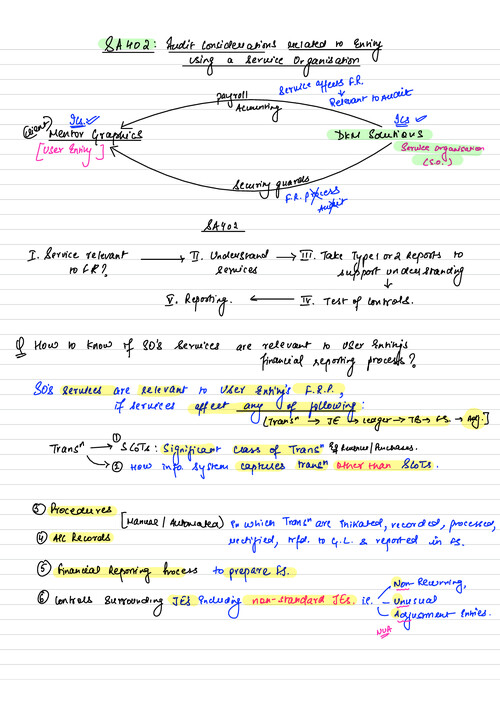 SA402: Audit Considerations related to Entity
using a Service Organisation
Service affects F.R.
Payroll
Accounting
Relevant to Audit
ICs ✓
ICs ✓
(Client)
Mentor Graphics
DKM Solutions
[User Entity]
Service Organisation
(S.O.)
Security guards
F.R. process
Audit
SA402
I. Service relevant to FR? → II. Understand services → III. Take Type 1 or 2 Reports to support understanding
V. Reporting. ← IV. Test of Controls.
Q How to know if SO's Services are relevant to User Entity's
financial reporting process?
SO's services are relevant to User Entity's F.R.P.,
if services affect any of following:
[Transⁿ → JE → Ledger → TB → F.S. → Adj.]
Transⁿ → ① SCOTs: Significant class of Transⁿ Eg Revenue/Purchases.
② How info system captures transⁿ other than SCOTs.
③ Procedures
[Manual / Automated] in which Transⁿ are initiated, recorded, processed,
④ A/C Records
rectified, trfd. to G.L. & reported in FS.
⑤ Financial Reporting Process to prepare FS.
⑥ Controls surrounding JEs including non-standard JEs. i.e.
Non-Recurring,
Unusual
Adjustment Entries.
NUA